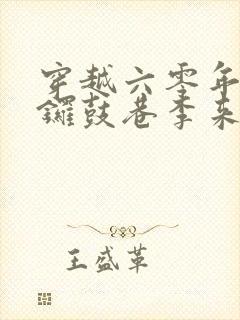 穿越六零年
锣鼓巷李来
王盛革